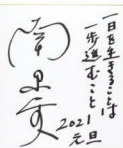 一日を生きることは
一歩進むこと
2021
元旦
南